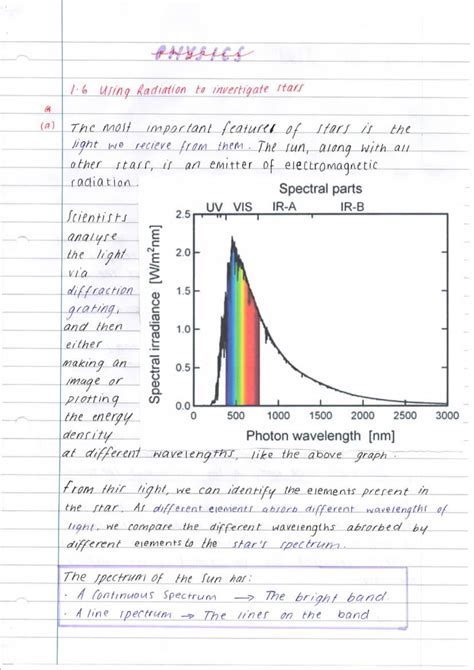 PHYSICS
1.6 Using Radiation to investigate stars
(a) The most important features of stars is the
light we recieve from them. The sun, along with all
other stars, is an emitter of electromagnetic
radiation.
Scientists
analyse
the light
via
diffraction
grating,
and then
either
making an
image or
plotting
the energy
density
Spectral parts
UV VIS IR-A IR-B
Spectral irradiance [W/m²nm]
2.5
2.0
1.5
1.0
0.5
0.0
0 500 1000 1500 2000 2500 3000
Photon wavelength [nm]
at different wavelengths, like the above graph.
From this light, we can identify the elements present in
the star. As different elements absorb different wavelengths of
light, we compare the different wavelengths absorbed by
different elements to the star's spectrum.
The spectrum of the Sun has:
· A Continuous Spectrum → The bright band.
· A line spectrum → The lines on the band.